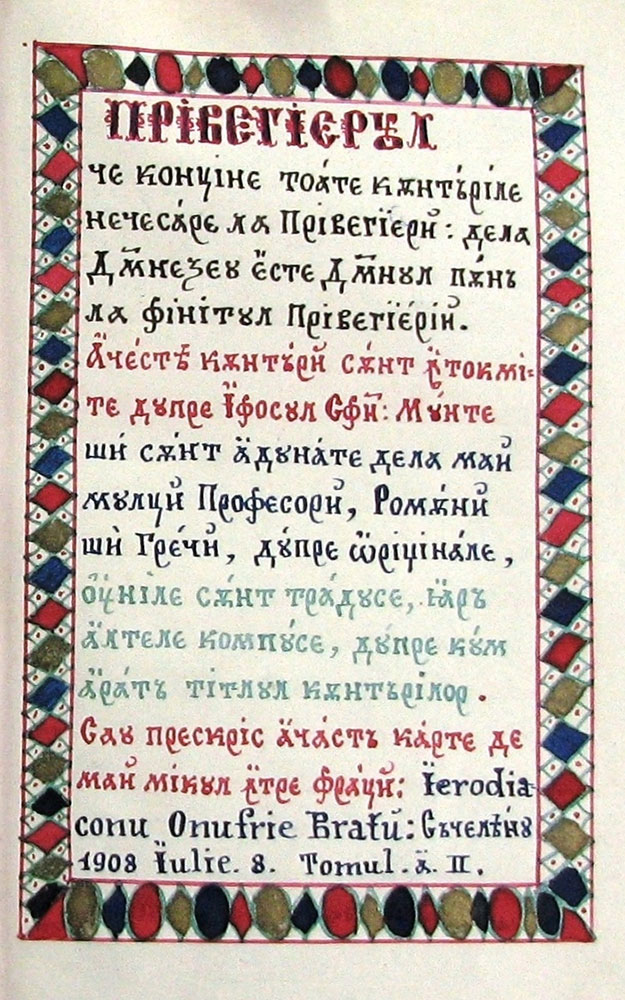 ПРІВЕГІЄРꙋЛ
че концїне тоа́те кѫнтъ́рїле
нечеса́ре ла Прївегїерй: дела
Дм҃незеꙋ є҆́сте Дм҃нꙋл пѫ́нъ
ла фінітꙋл Прївегїе́рїй.
А҆че́стѣ кѫнтъ́рй сѫ́нт ꙟ҆токмі=
те дꙋпре І҆фосꙋл Сфн҃: Мꙋ́нте
шѝ сѫ́нт а҆дꙋна́те дела май
мꙋлцй Професорй, Ромѫ́нй
шѝ Гре́чй, дꙋ́пре ѡ҆ріџіна́ле,
ꙋ҆́неле сѫ́нт тра́дꙋсе, ꙗ҆ръ
а҆́лтеле компꙋ́се, дꙋ́пре кꙋ́м
а҆ра́тъ тітлꙋл кѫнтърілор.
Саꙋ прескріс а҆ча́стъ ка́рте де
май мікꙋл ꙟ҆тре фра́цй: Ïerodia-
conu Onufrie Bratŭ: Съчеле́нꙋ
1908 Ïulie. 8. Tomul. ä. II.